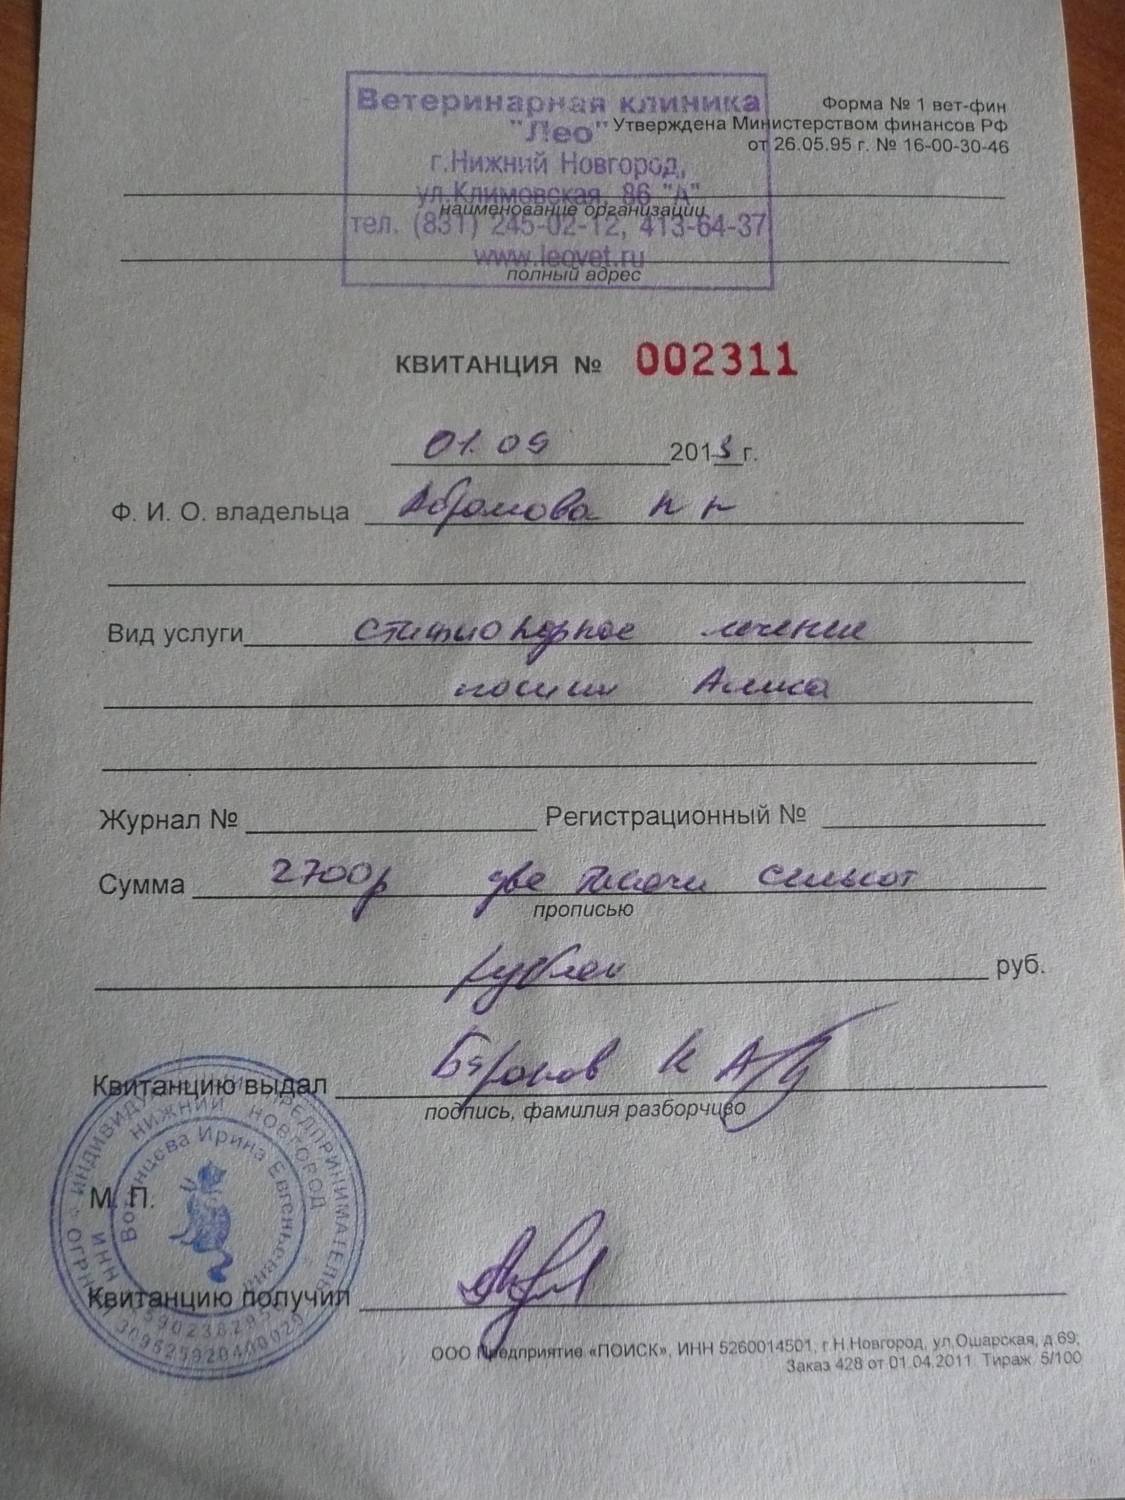 Ветеринарная клиника
"Лео"
г.Нижний Новгород,
ул.Климовская, 86 "А"
тел. (831) 245-02-12, 413-64-37
www.leovet.ru
Форма № 1 вет-фин
Утверждена Министерством финансов РФ
от 26.05.95 г. № 16-00-30-46
наименование организации
полный адрес
КВИТАНЦИЯ № 002311
01.09 2013 г.
Ф. И. О. владельца Абрамова
Вид услуги стационарное лечение
Алиса
Журнал № Регистрационный №
Сумма 2700р две тысячи семьсот
прописью
рублей руб.
Квитанцию выдал К А
подпись, фамилия разборчиво
М. П.
Квитанцию получил
ИНДИВИДУАЛЬНЫЙ ПРЕДПРИНИМАТЕЛЬ
НИЖНИЙ НОВГОРОД
Ирина Евгеньевна
ИНН
ОГРНИП 309525920400029
ООО Предприятие «ПОИСК», ИНН 5260014501, г.Н.Новгород, ул.Ошарская, д 69;
Заказ 428 от 01.04.2011. Тираж. 5/100